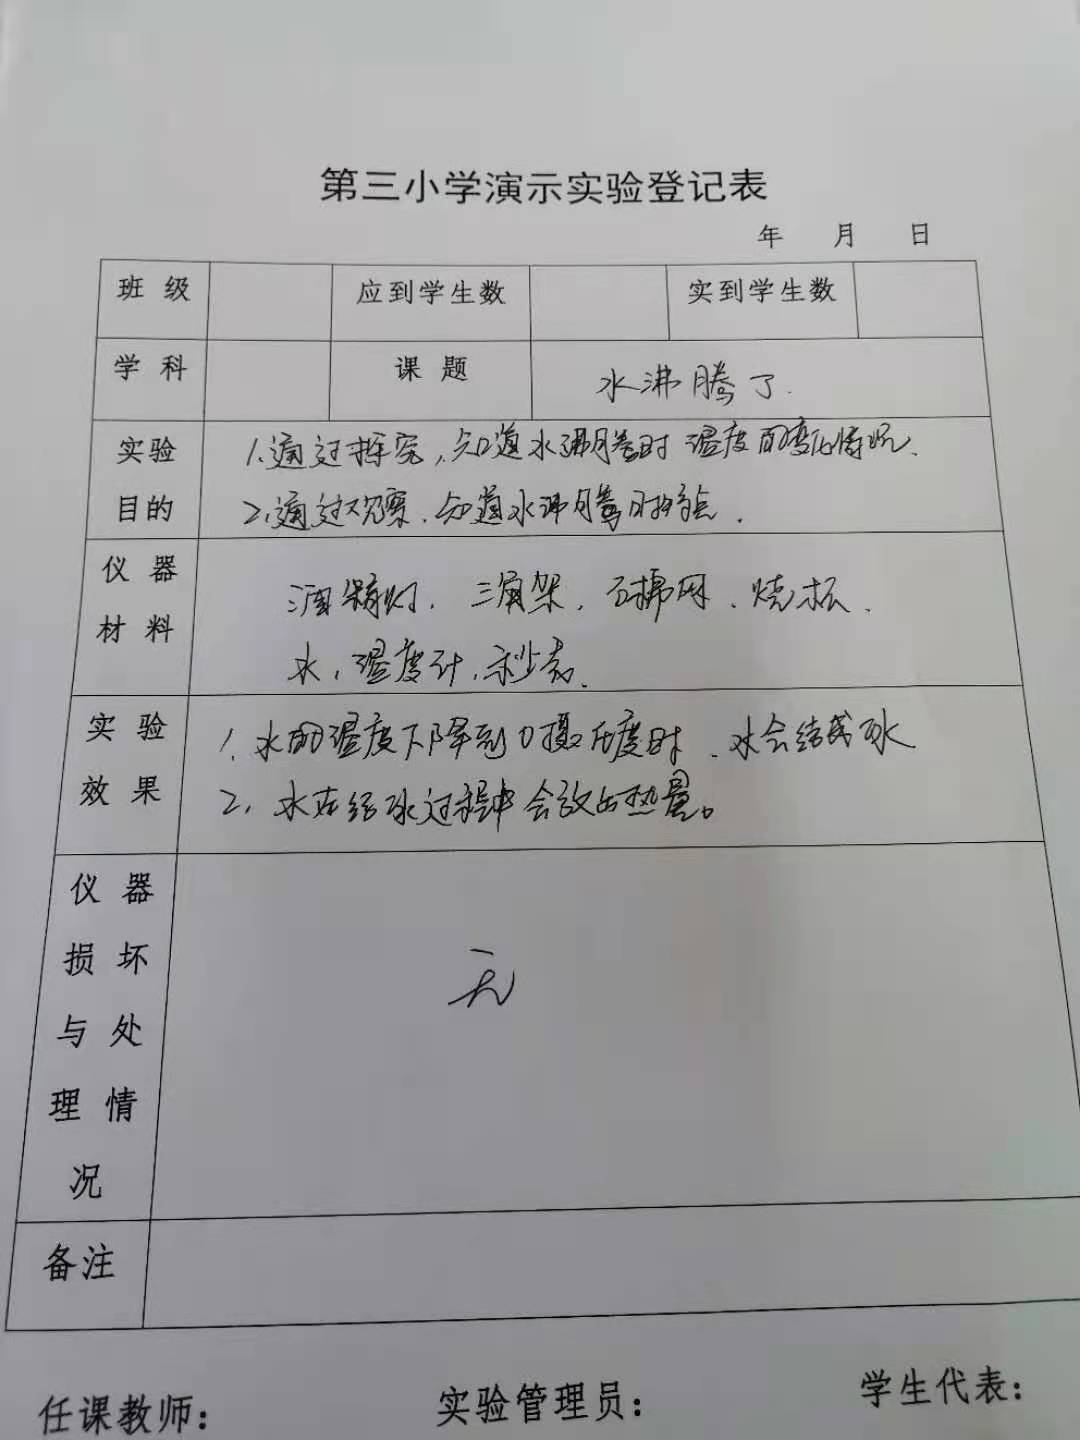 第三小学演示实验登记表
年 月 日
班级 应到学生数 实到学生数
学科 课题 水沸腾了.
实验目的
1.通过探究,知道水沸腾时温度的变化情况.
2.通过观察.知道水沸腾时特点.
仪器材料
酒精灯.三角架.石棉网.烧杯.
水,温度计,秒表.
实验效果
1.水的温度下降到0摄氏度时.水会结成冰
2.水在结冰过程中会放出热量。
仪器损坏与处理情况
无
备注
任课教师: 实验管理员: 学生代表: